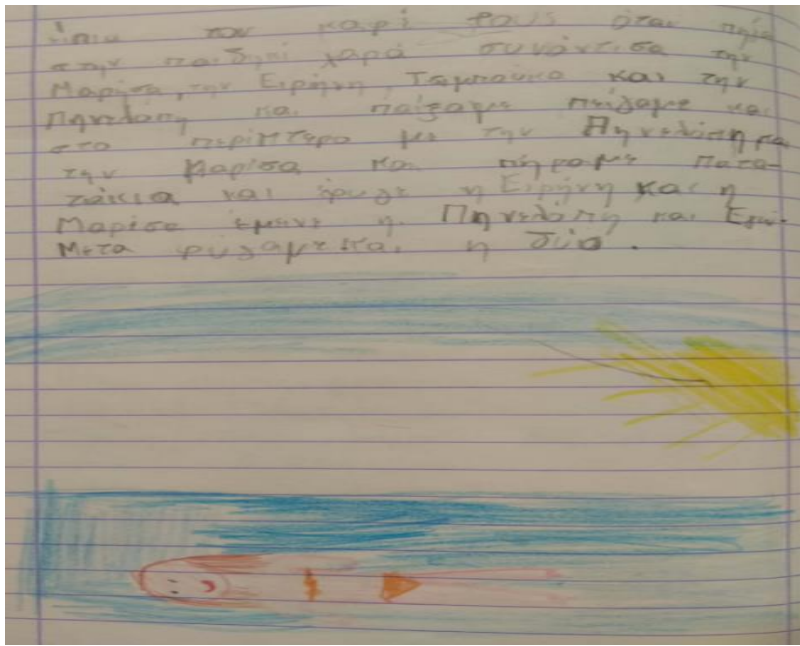 ήπια τον καφέ τους όταν πήγα
στην παιδηκή χαρά συνάντισα την
Μαρήσα, την Ειρήνη, Τσμπούκα και την
Πηνελόπη και παίξαμε πείγαμε και
στο περίπτερο με την Πηνελόπη και
την Μαρίσα και πήραμε πατα-
τάκια και έφυγε η Ειρήνη και η
Μαρίσα έμεινε η Πηνελόπη και Εγώ.
Μετα φύγαμε και η δύο.